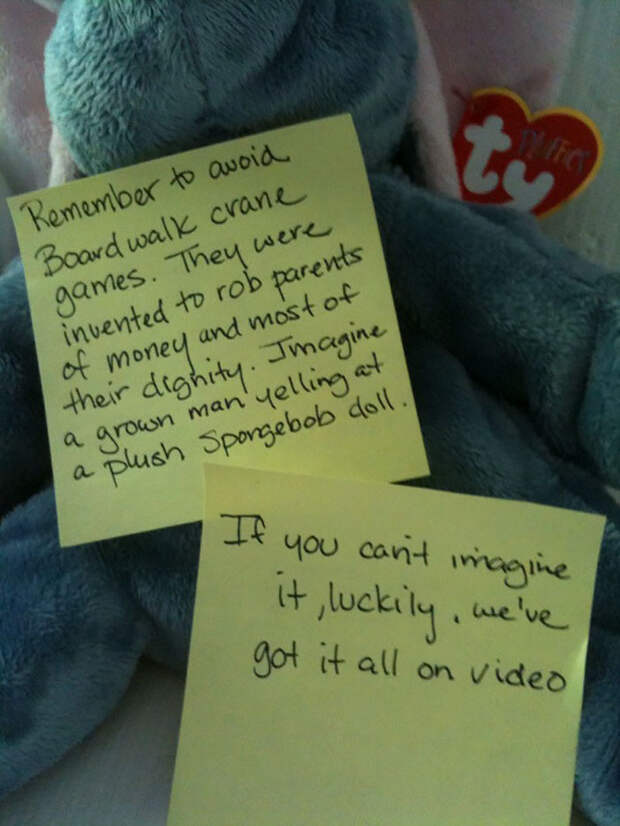 ty
Remember to avoid
Boardwalk crane
games. They were
invented to rob parents
of money and most of
their dignity. Imagine
a grown man yelling at
a plush Spongebob doll.
If you can't imagine
it, luckily, we've
got it all on video